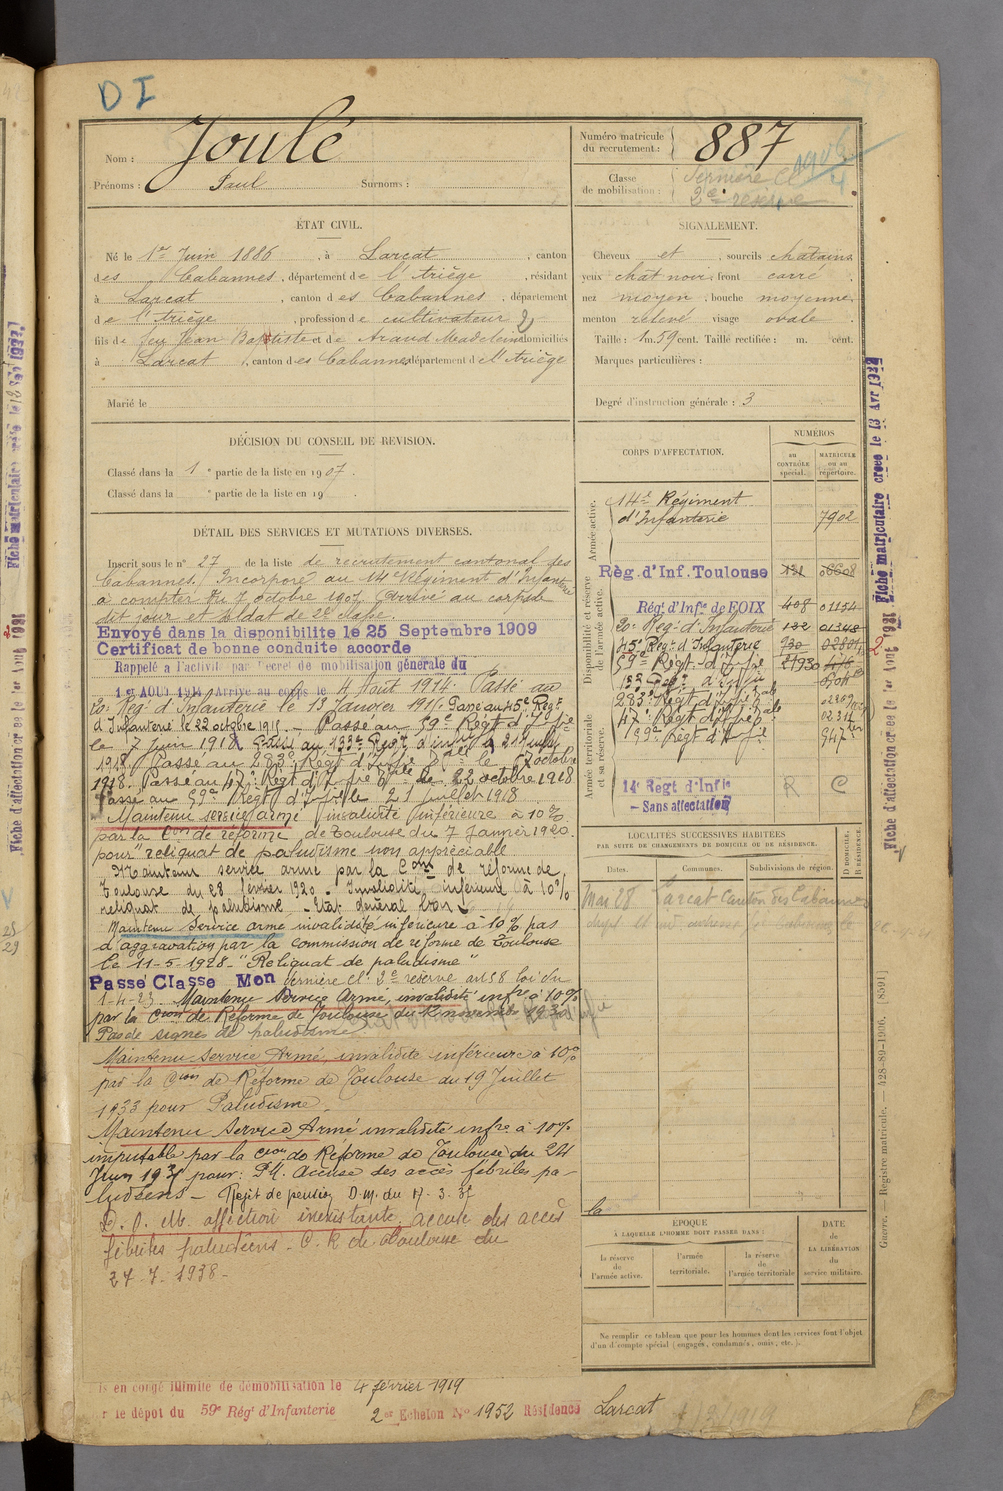 D I
Nom : Joulé
Prénoms : Paul Surnoms :
Numéro matricule du recrutement : 887
Classe de mobilisation : Dernière Cl
2e réserve
ÉTAT CIVIL.
Né le 1er Juin 1886, à Larcat, canton
des Cabannes, département de l'Ariège, résidant
à Larcat, canton des Cabannes, département
de l'Ariège, profession de cultivateur
fils de feu Jean Baptiste et de Araud Madeleine domiciliés
à Larcat, canton des Cabannes département de l'Ariège
Marié le
SIGNALEMENT.
Cheveux et sourcils chatains
yeux chat noir, front carré
nez moyen, bouche moyenne,
menton relevé visage ovale.
Taille : 1 m. 59 cent. Taille rectifiée : m. cent.
Marques particulières :
Degré d'instruction générale : 3
DÉCISION DU CONSEIL DE REVISION.
Classé dans la 1e partie de la liste en 1907.
Classé dans la e partie de la liste en 19 .
DÉTAIL DES SERVICES ET MUTATIONS DIVERSES.
Inscrit sous le n° 27 de la liste de recrutement cantonal des
Cabannes. Incorporé au 14e Régiment d'Infanterie
à compter du 7 octobre 1907. Arrivé au corps le
dit jour et soldat de 2e classe.
Envoyé dans la disponibilite le 25 Septembre 1909
Certificat de bonne conduite accorde
Rappelé a l'activité par Decret de mobilisation générale du
1er AOUT 1914 Arrivé au corps le 4 Août 1914. Passé au
20e Rég. d'Infanterie le 13 Janvier 1915. Passé au 45e Régt
d'Infanterie le 22 octobre 1915. - Passé au 59e Régt d'Infie
le 7 Juin 1918. Passé au 133e Régt d'infie le 21 juillet
1918. Passé au 283e Régt d'Infie le 7 octobre
1918. Passé au 47e Régt d'Infie le 22 octobre 1918
Passé au 59e Régt d'Infie le 21 juillet 1918
Maintenu service armé invalidité inférieure à 10%
par la Con de réforme de Toulouse du 7 Janvier 1920.
pour "reliquat de paludisme non appréciable
Maintenu service armé par la Con de réforme de
Toulouse du 28 février 1920 - Invalidité inférieure à 10%
reliquat de paludisme - Etat général bon
Maintenu Service armé invalidité inférieure à 10% pas
d'aggravation par la commission de reforme de Toulouse
le 11-5-1928 - "Reliquat de paludisme"
Passé Classe Mon dernière Cl. 2e réserve art 58 loi du
1-4-23 Maintenu Service Armé, invalidité infre à 10%
par la Con de Réforme de Toulouse du 12 novembre 1930
Pas de signes de paludisme
Maintenu Service Armé, invalidité inférieure à 10%
par la Con de Réforme de Toulouse du 19 Juillet
1933 pour Paludisme.
Maintenu Service Armé invalidité infre à 10%
imputable par la Con de Réforme de Toulouse du 24
Juin 193 pour : P4. Accuse des accès fébriles pa-
ludéens - Rejet de pension D.M. du 17-3-37
affection inexistante, accuse des accès
fébriles paludéens. C. R de Toulouse du
27-7-1938-
is en congé illimité de démobilisation le 4 février 1919
r le dépot du 59e Régt d'Infanterie 2e Echelon No 1952 Résidence Larcat
CORPS D'AFFECTATION.
NUMÉROS
au CONTRÔLE spécial.
MATRICULE ou au répertoire.
Armée active.
14e Régiment
d'Infanterie 7902
Disponibilité et réserve de l'armée active.
Règ. d'Inf. Toulouse
Régt d'Infie de FOIX 408 01154
20e Régt d'Infanterie 132 01348
45e Régt d'Infanterie
59e Régt d'Infie
133e Régt d'Infie
283e Régt d'Infie
47e Régt d'Infie
59e Régt d'Infie 947
Armée territoriale et sa réserve.
14e Regt d'Infie
- Sans affectation
R C
LOCALITÉS SUCCESSIVES HABITÉES
PAR SUITE DE CHANGEMENTS DE DOMICILE OU DE RÉSIDENCE.
Dates. Communes. Subdivisions de région. D. DOMICILE. R. RÉSIDENCE.
Mai 28 Larcat Canton des Cabannes
ÉPOQUE
À LAQUELLE L'HOMME DOIT PASSER DANS :
la réserve de l'armée active.
l'armée territoriale.
la réserve de l'armée territoriale
DATE DE LA LIBÉRATION du service militaire.
Ne remplir ce tableau que pour les hommes dont les services font l'objet
d'un décompte spécial (engagés, condamnés, omis, etc.).
Fiche matriculaire créée le 13 Avr 1932
Fiche d'affectation créée le 1er Aout 1931
Guerre. — Registre matricule. — 428-89-1906. [859]